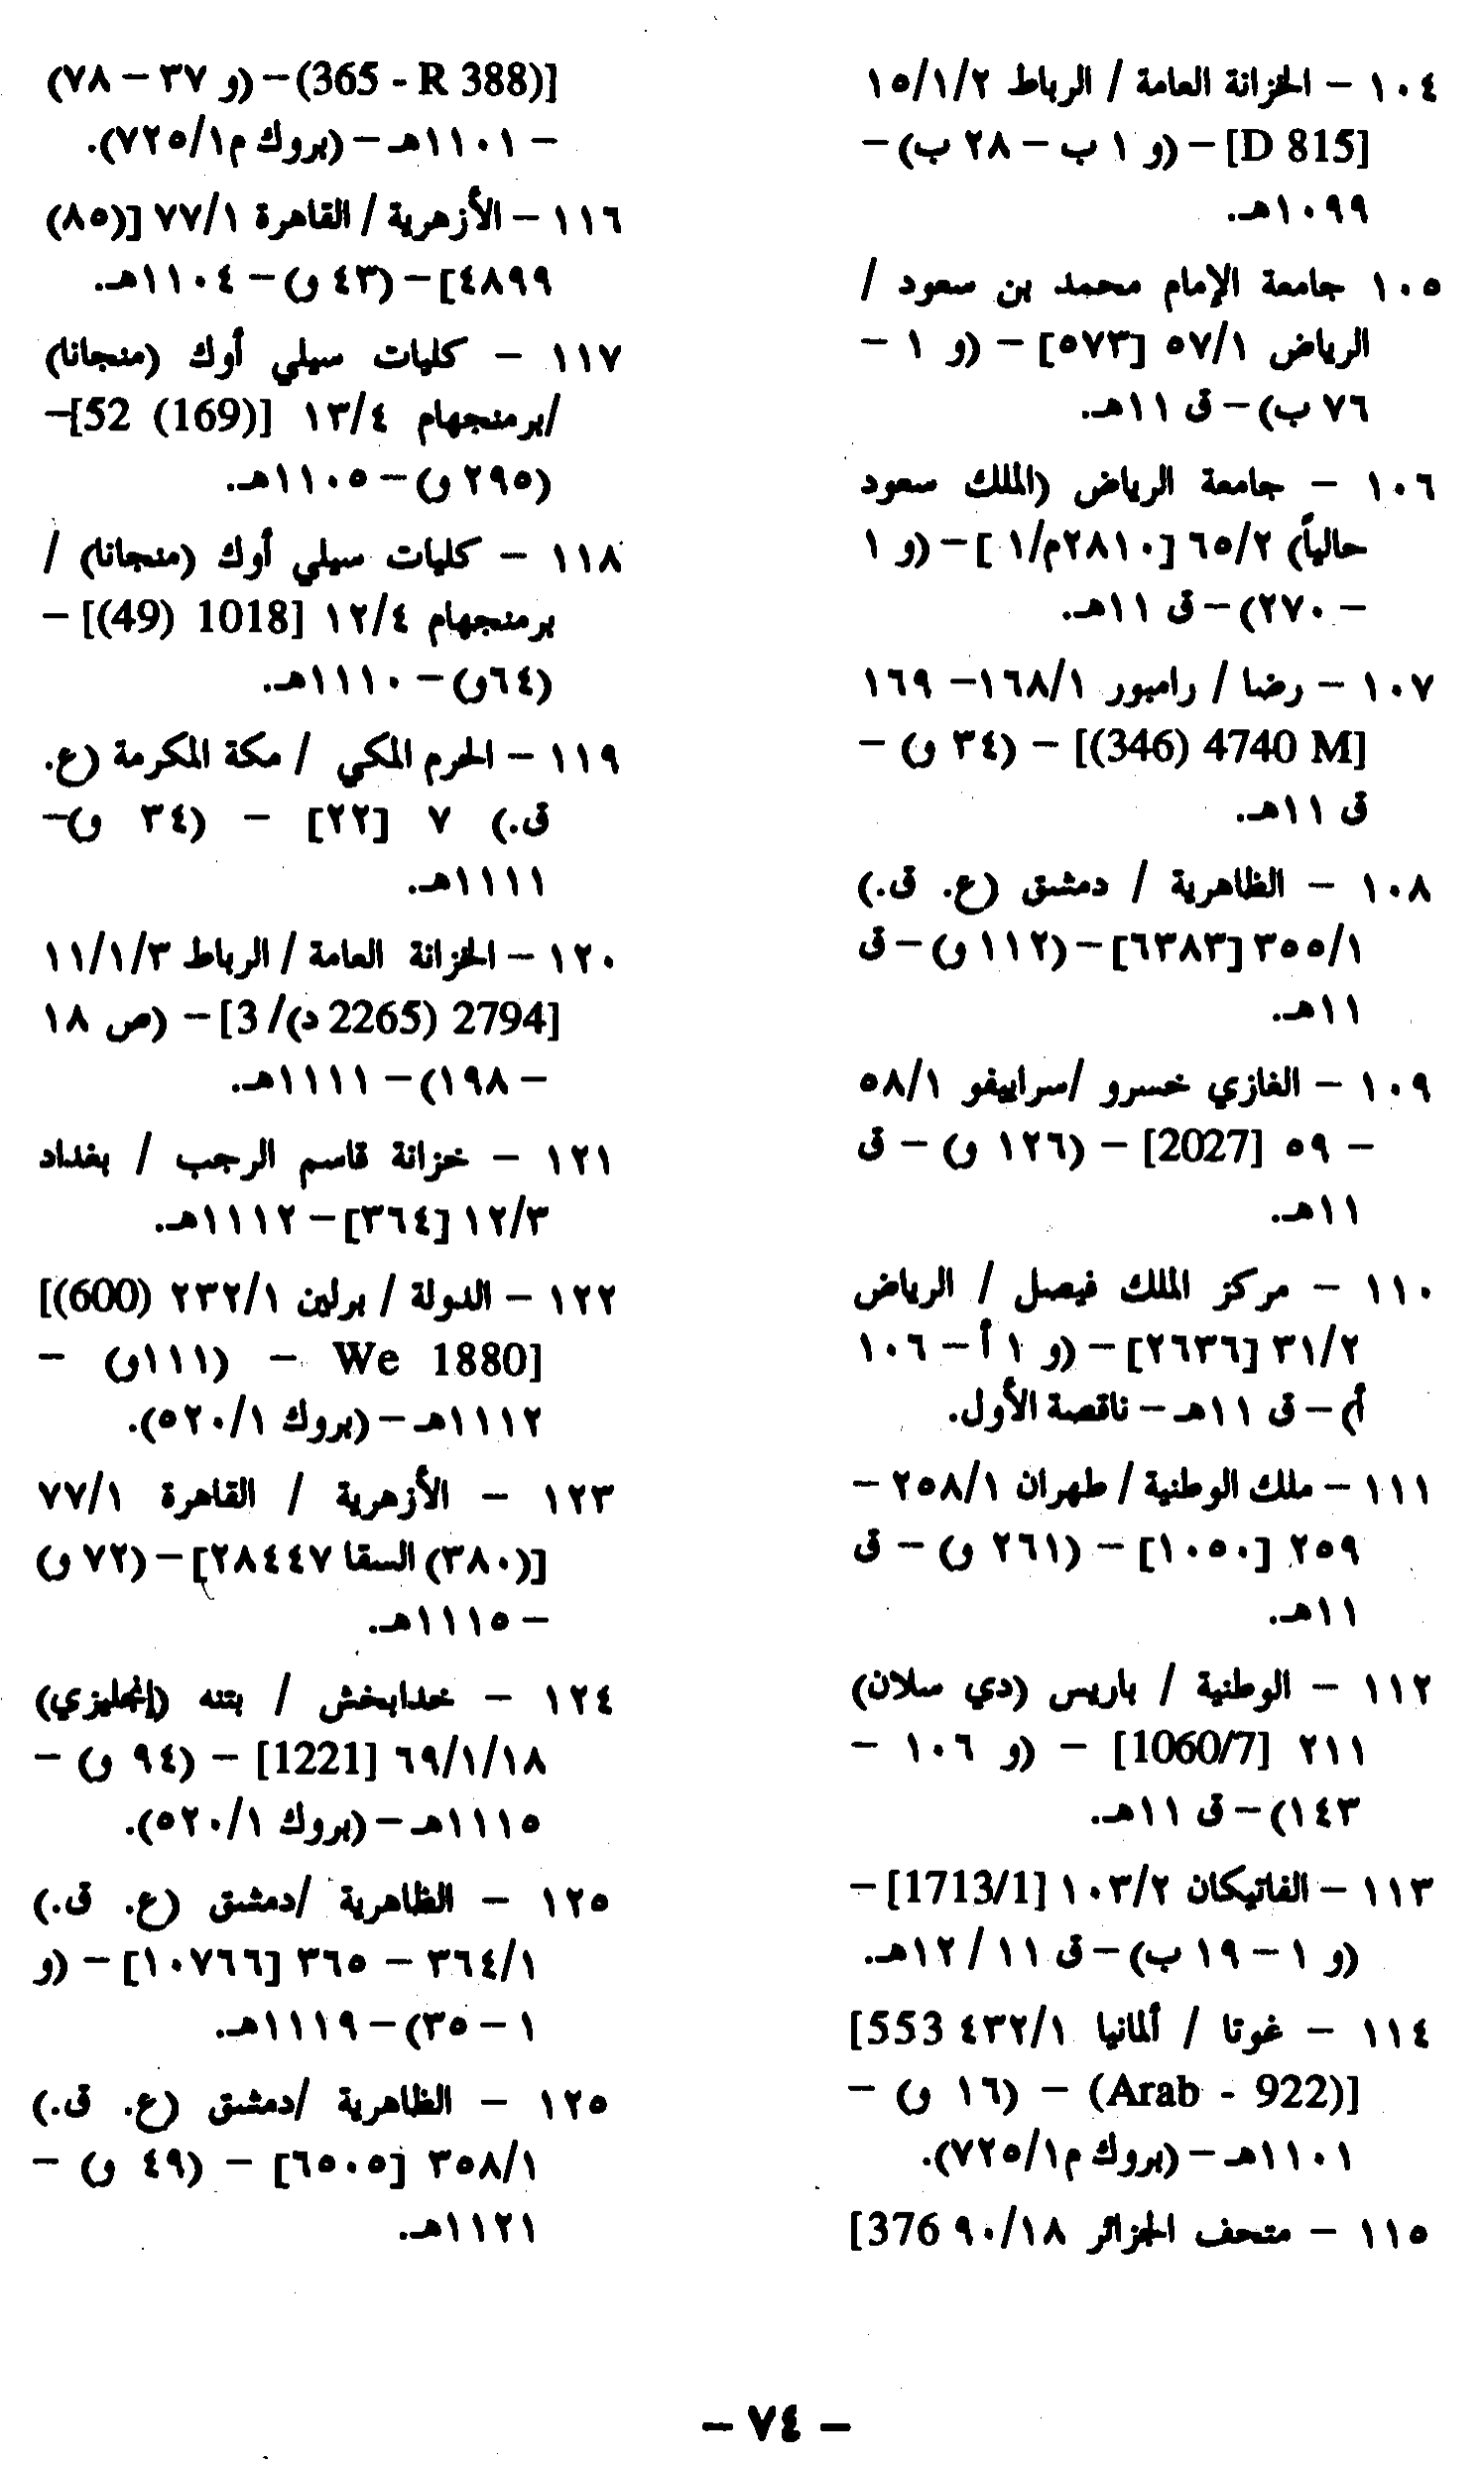 ١٠٤ – الخزانة العامة / الرباط ١٥/١/٢
[D 815] – (و ١ ب – ٢٨ ب) –
١٠٩٩هـ.
١٠٥ جامعة الإمام محمد بن سعود /
الرياض ٥٧/١ [٥٧٣] – (و ١ –
٧٦ ب) – ق ١١هـ.
١٠٦ – جامعة الرياض (الملك سعود
حالياً) ٦٥/٢ [٢٨١٠م/١] – (و ١
– ٢٧٠) – ق ١١هـ.
١٠٧ – رضا / رامبور ١٦٨/١ – ١٦٩
[(346) 4740 M] – (٣٤ و) –
ق ١١هـ.
١٠٨ – الظاهرية / دمشق (ع. ق.)
٣٥٥/١ [٦٣٨٣] – (١١٢ و) – ق
١١هـ.
١٠٩ – الغازي خسرو /سراييفو ٥٨/١
– ٥٩ [2027] – (١٢٦ و) – ق
١١هـ.
١١٠ – مركز الملك فيصل / الرياض
٣١/٢ [٢٦٣٦] – (و ١ أ – ١٠٦
أ) – ق ١١هـ – ناقصة الأول.
١١١ – ملك الوطنية / طهران ٢٥٨/١ –
٢٥٩ [١٠٥٠] – (٢٦١ و) – ق
١١هـ.
١١٢ – الوطنية / باريس (دي سلان)
٢١١ [1060/7] – (و ١٠٦ –
١٤٣) – ق ١١هـ.
١١٣ – الفاتيكان ١٠٣/٢ [1713/1] –
(و ١ – ١٩ ب) – ق ١١ / ١٢هـ.
١١٤ – غوتا / ألمانيا ٤٣٢/١ 553]
[(Arab - 922) – (١٦ و) –
١١٠١هـ – (بروك م٧٢٥/١).
١١٥ – متحف الجزائر ٩٠/١٨ 376]
[(365 - R 388) – (و ٣٧ – ٧٨)
– ١١٠١هـ – (بروك م٧٢٥/١).
١١٦ – الأزهرية / القاهرة ٧٧/١ [(٨٥)
٤٨٩٩] – (٤٣ و) – ١١٠٤هـ.
١١٧ – كليات سيلي أوك (منجانا)
/برمنجهام ١٣/٤ [52 (169)] –
(٢٩٥ و) – ١١٠٥هـ.
١١٨ – كليات سيلي أوك (منجانا) /
برمنجهام ١٢/٤ [(49) 1018] –
(٦٤و) – ١١١٠هـ.
١١٩ – الحرم المكي / مكة المكرمة (ع.
ق.) ٧ [٢٢] – (٣٤ و) –
١١١١هـ.
١٢٠ – الخزانة العامة / الرباط ١١/١/٣
[2794 (2265 د)/3] – (ص ١٨
– ١٩٨) – ١١١١هـ.
١٢١ – خزانة قاسم الرجب / بغداد
١٢/٣ [٣٦٤] – ١١١٢هـ.
١٢٢ – الدولة / برلين ٢٣٢/١ (600)]
[We 1880 – (١١١و) –
١١١٢هـ – (بروك ٥٢٠/١).
١٢٣ – الأزهرية / القاهرة ٧٧/١
[(٣٨٠) السقا ٢٨٤٤٧] – (٧٢ و)
– ١١١٥هـ.
١٢٤ – خدابخش / بتنه (إنجليزي)
٦٩/١/١٨ [1221] – (٩٤ و) –
١١١٥هـ – (بروك ٥٢٠/١).
١٢٥ – الظاهرية /دمشق (ع. ق.)
٣٦٤/١ – ٣٦٥ [١٠٧٦٦] – (و
١ – ٣٥) – ١١١٩هـ.
١٢٥ – الظاهرية /دمشق (ع. ق.)
٣٥٨/١ [٦٥٠٥] – (٤٩ و) –
١١٢١هـ.
– ٧٤ –